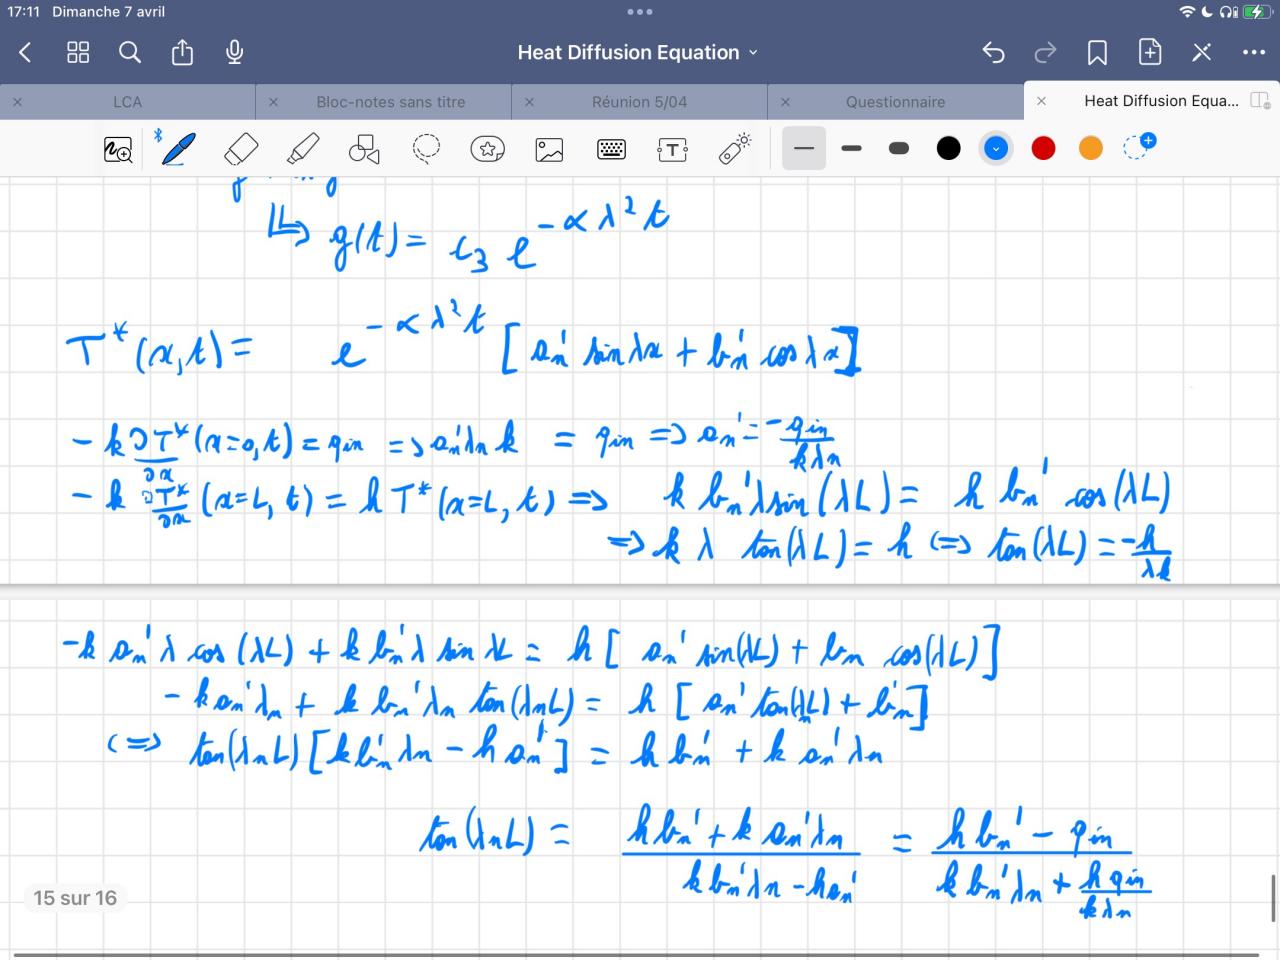 17:11 Dimanche 7 avril
Heat Diffusion Equation
LCA
Bloc-notes sans titre
Réunion 5/04
Questionnaire
Heat Diffusion Equa...
g(t) = c₃ e^{-αλ²t}
T*(x,t) = e^{-αλ²t} [an' sin λx + bn' cos λx]
-k ∂T*/∂x (x=0,t) = qin => an'λn k = qin => an' = -qin/kλn
-k ∂T*/∂x (x=L, t) = h T*(x=L, t) => k bn'λ sin(λL) = h bn' cos(λL)
=> k λ tan(λL) = h <=> tan(λL) = -h/λk
-k an'λ cos(λL) + k bn'λ sin λL = h [an' sin(λL) + bn cos(λL)]
-k an'λn + k bn'λn tan(λnL) = h [an' tan(λnL) + bn']
<=> tan(λnL) [k bn'λn - h an'] = h bn' + k an'λn
tan(λnL) = (h bn' + k an'λn)/(k bn'λn - h an') = (h bn' - qin)/(k bn'λn + h qin/kλn)
15 sur 16